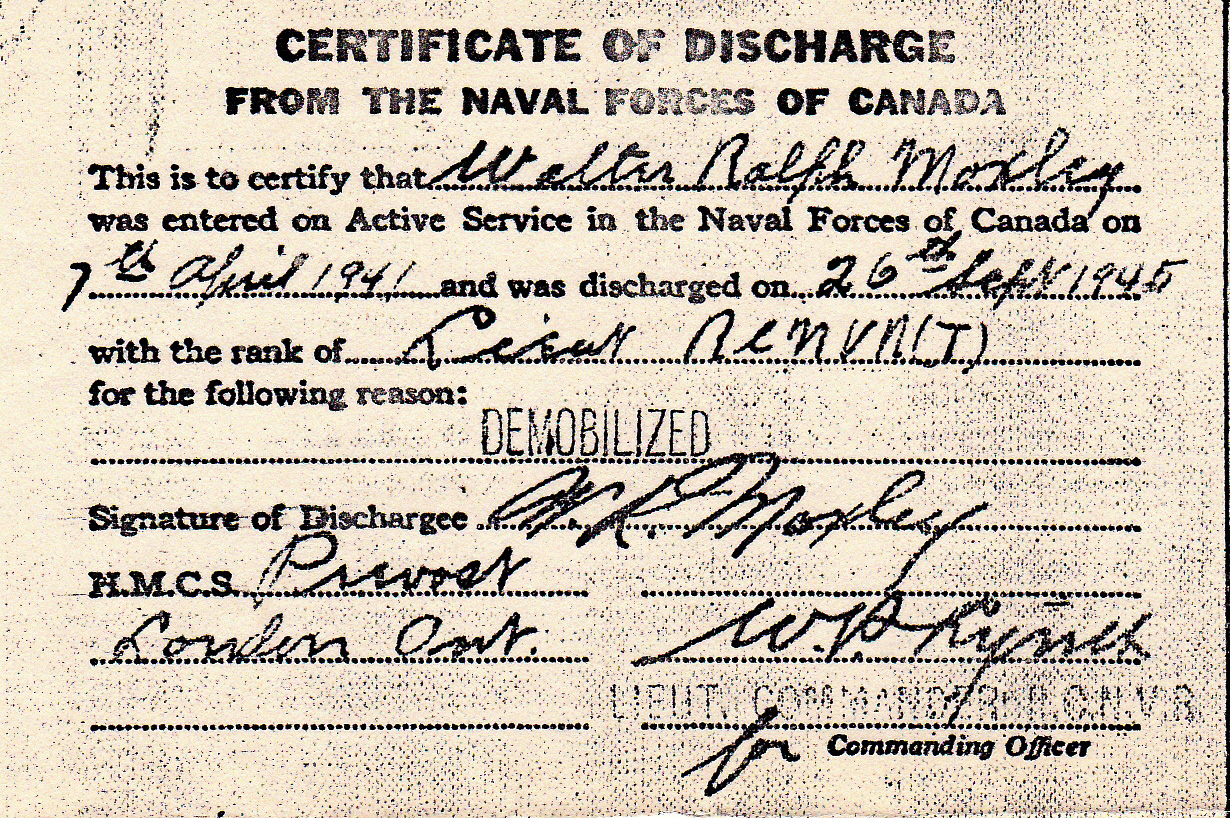 CERTIFICATE OF DISCHARGE
FROM THE NAVAL FORCES OF CANADA
This is to certify that Walter Ralph Moxley
was entered on Active Service in the Naval Forces of Canada on
7th April 1941 and was discharged on 26th Sept 1945
with the rank of Lieut RCNVR(T)
for the following reason:
DEMOBILIZED
Signature of Dischargee W.R. Moxley
H.M.C.S. Prevost
London Ont. W.P.
LIEUT. COMMANDER R.C.N.V.R.
for Commanding Officer